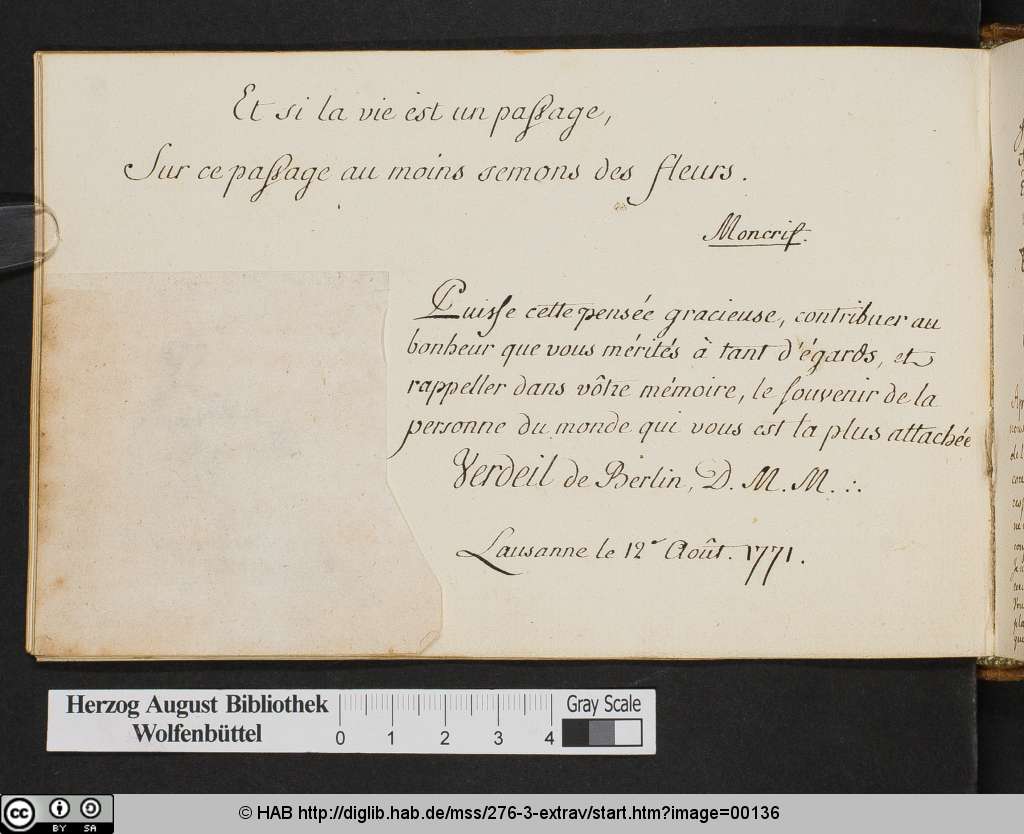 Et si la vie est un passage,
Sur ce passage au moins semons des fleurs.
Moncrif.
Puisse cette pensée gracieuse, contribuer au
bonheur que vous mérités à tant d'égards, et
rappeller dans vôtre mémoire, le souvenir de la
personne du monde qui vous est la plus attachée
Verdeil de Berlin, D. M. M. .:.
Lausanne le 12e Août. 1771.
Herzog August Bibliothek
Wolfenbüttel
0 1 2 3 4
Gray Scale
cc BY SA
© HAB http://diglib.hab.de/mss/276-3-extrav/start.htm?image=00136